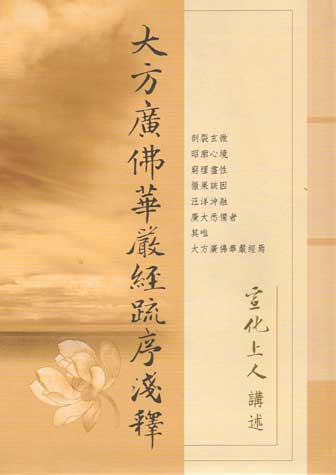 大方廣佛華嚴經疏序淺釋
剖裂玄微
昭廓心境
窮理盡性
徹果該因
汪洋沖融
廣大悉備者
其唯
大方廣佛華嚴經焉
宣化上人 講述